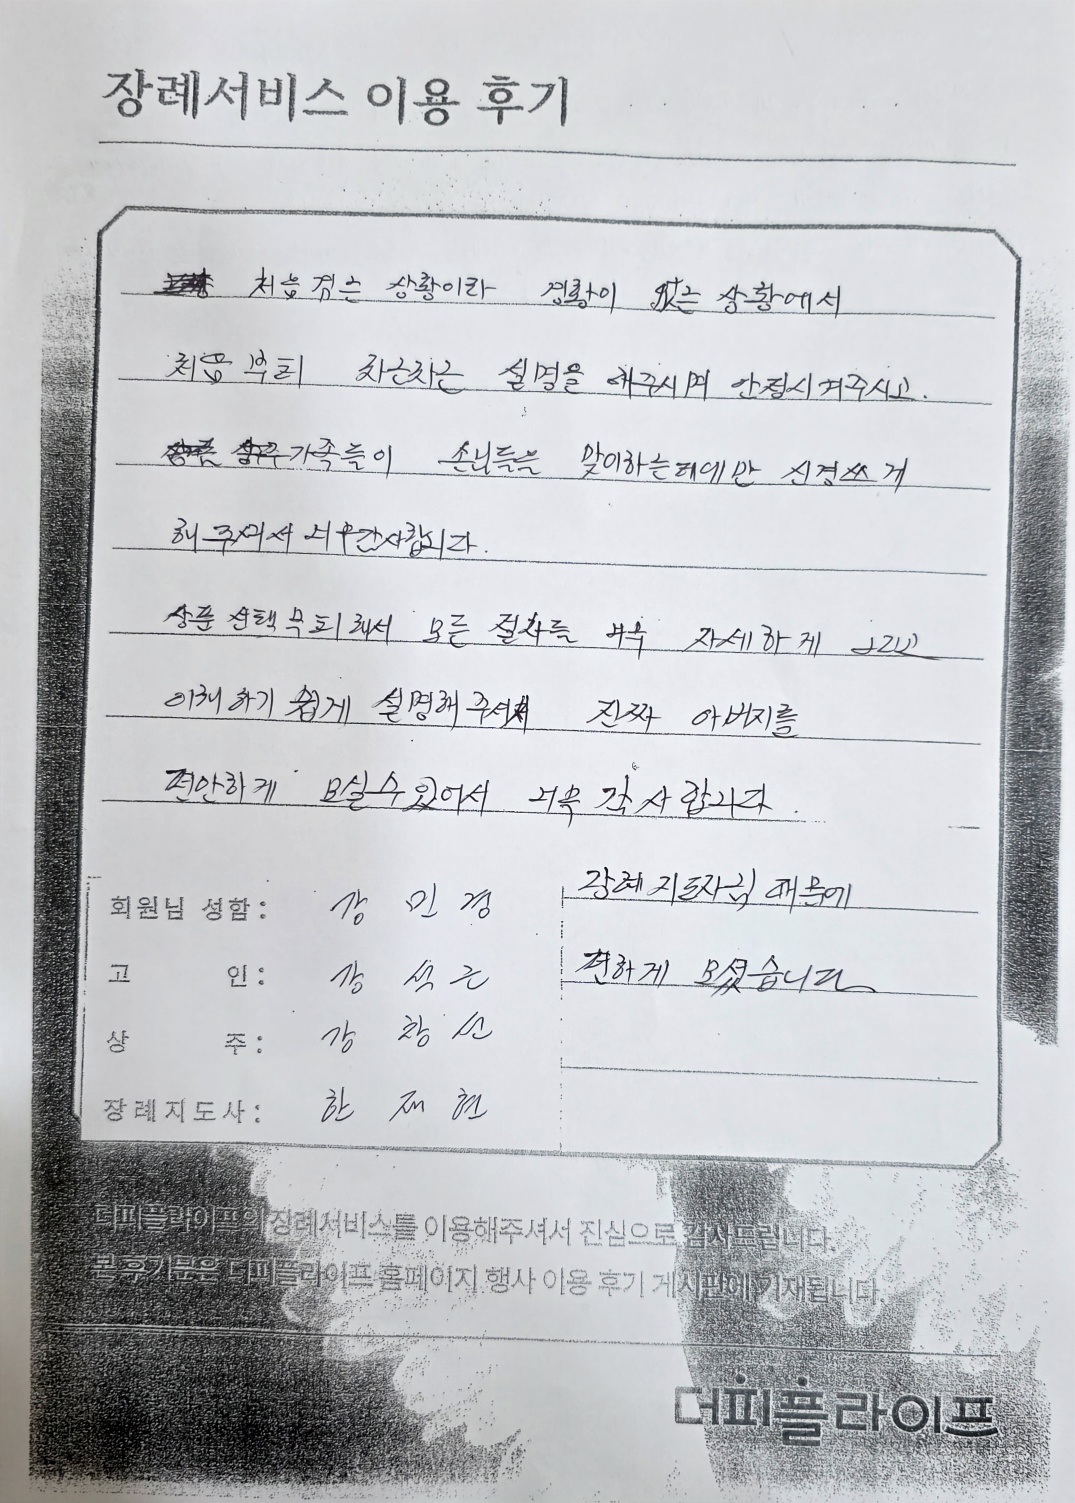 장례서비스 이용 후기
처음 겪는 상황이라 경황이 없는 상황에서
처음 부터 차근차근 설명을 해주시며 안정시켜주시고.
가족들이 손님들을 맞이하는데에만 신경쓰게
해 주셔서 너무감사합니다.
상품 선택부터해서 모든 절차를 너무 자세하게 그리고
이해하기 쉽게 설명해 주셔서 진짜 아버지를
편안하게 모실수 있어서 너무 감사합니다.
장례지도사님 때문에
편하게 모셨습니다
회원님 성함: 강 민 경
고 인: 강 석 근
상 주: 강 창 선
장례지도사: 한 재 현
더피플라이프의 장례서비스를 이용해주셔서 진심으로 감사드립니다.
본 후기문은 더피플라이프 홈페이지 행사 이용 후기 게시판에 기재됩니다.
더피플라이프